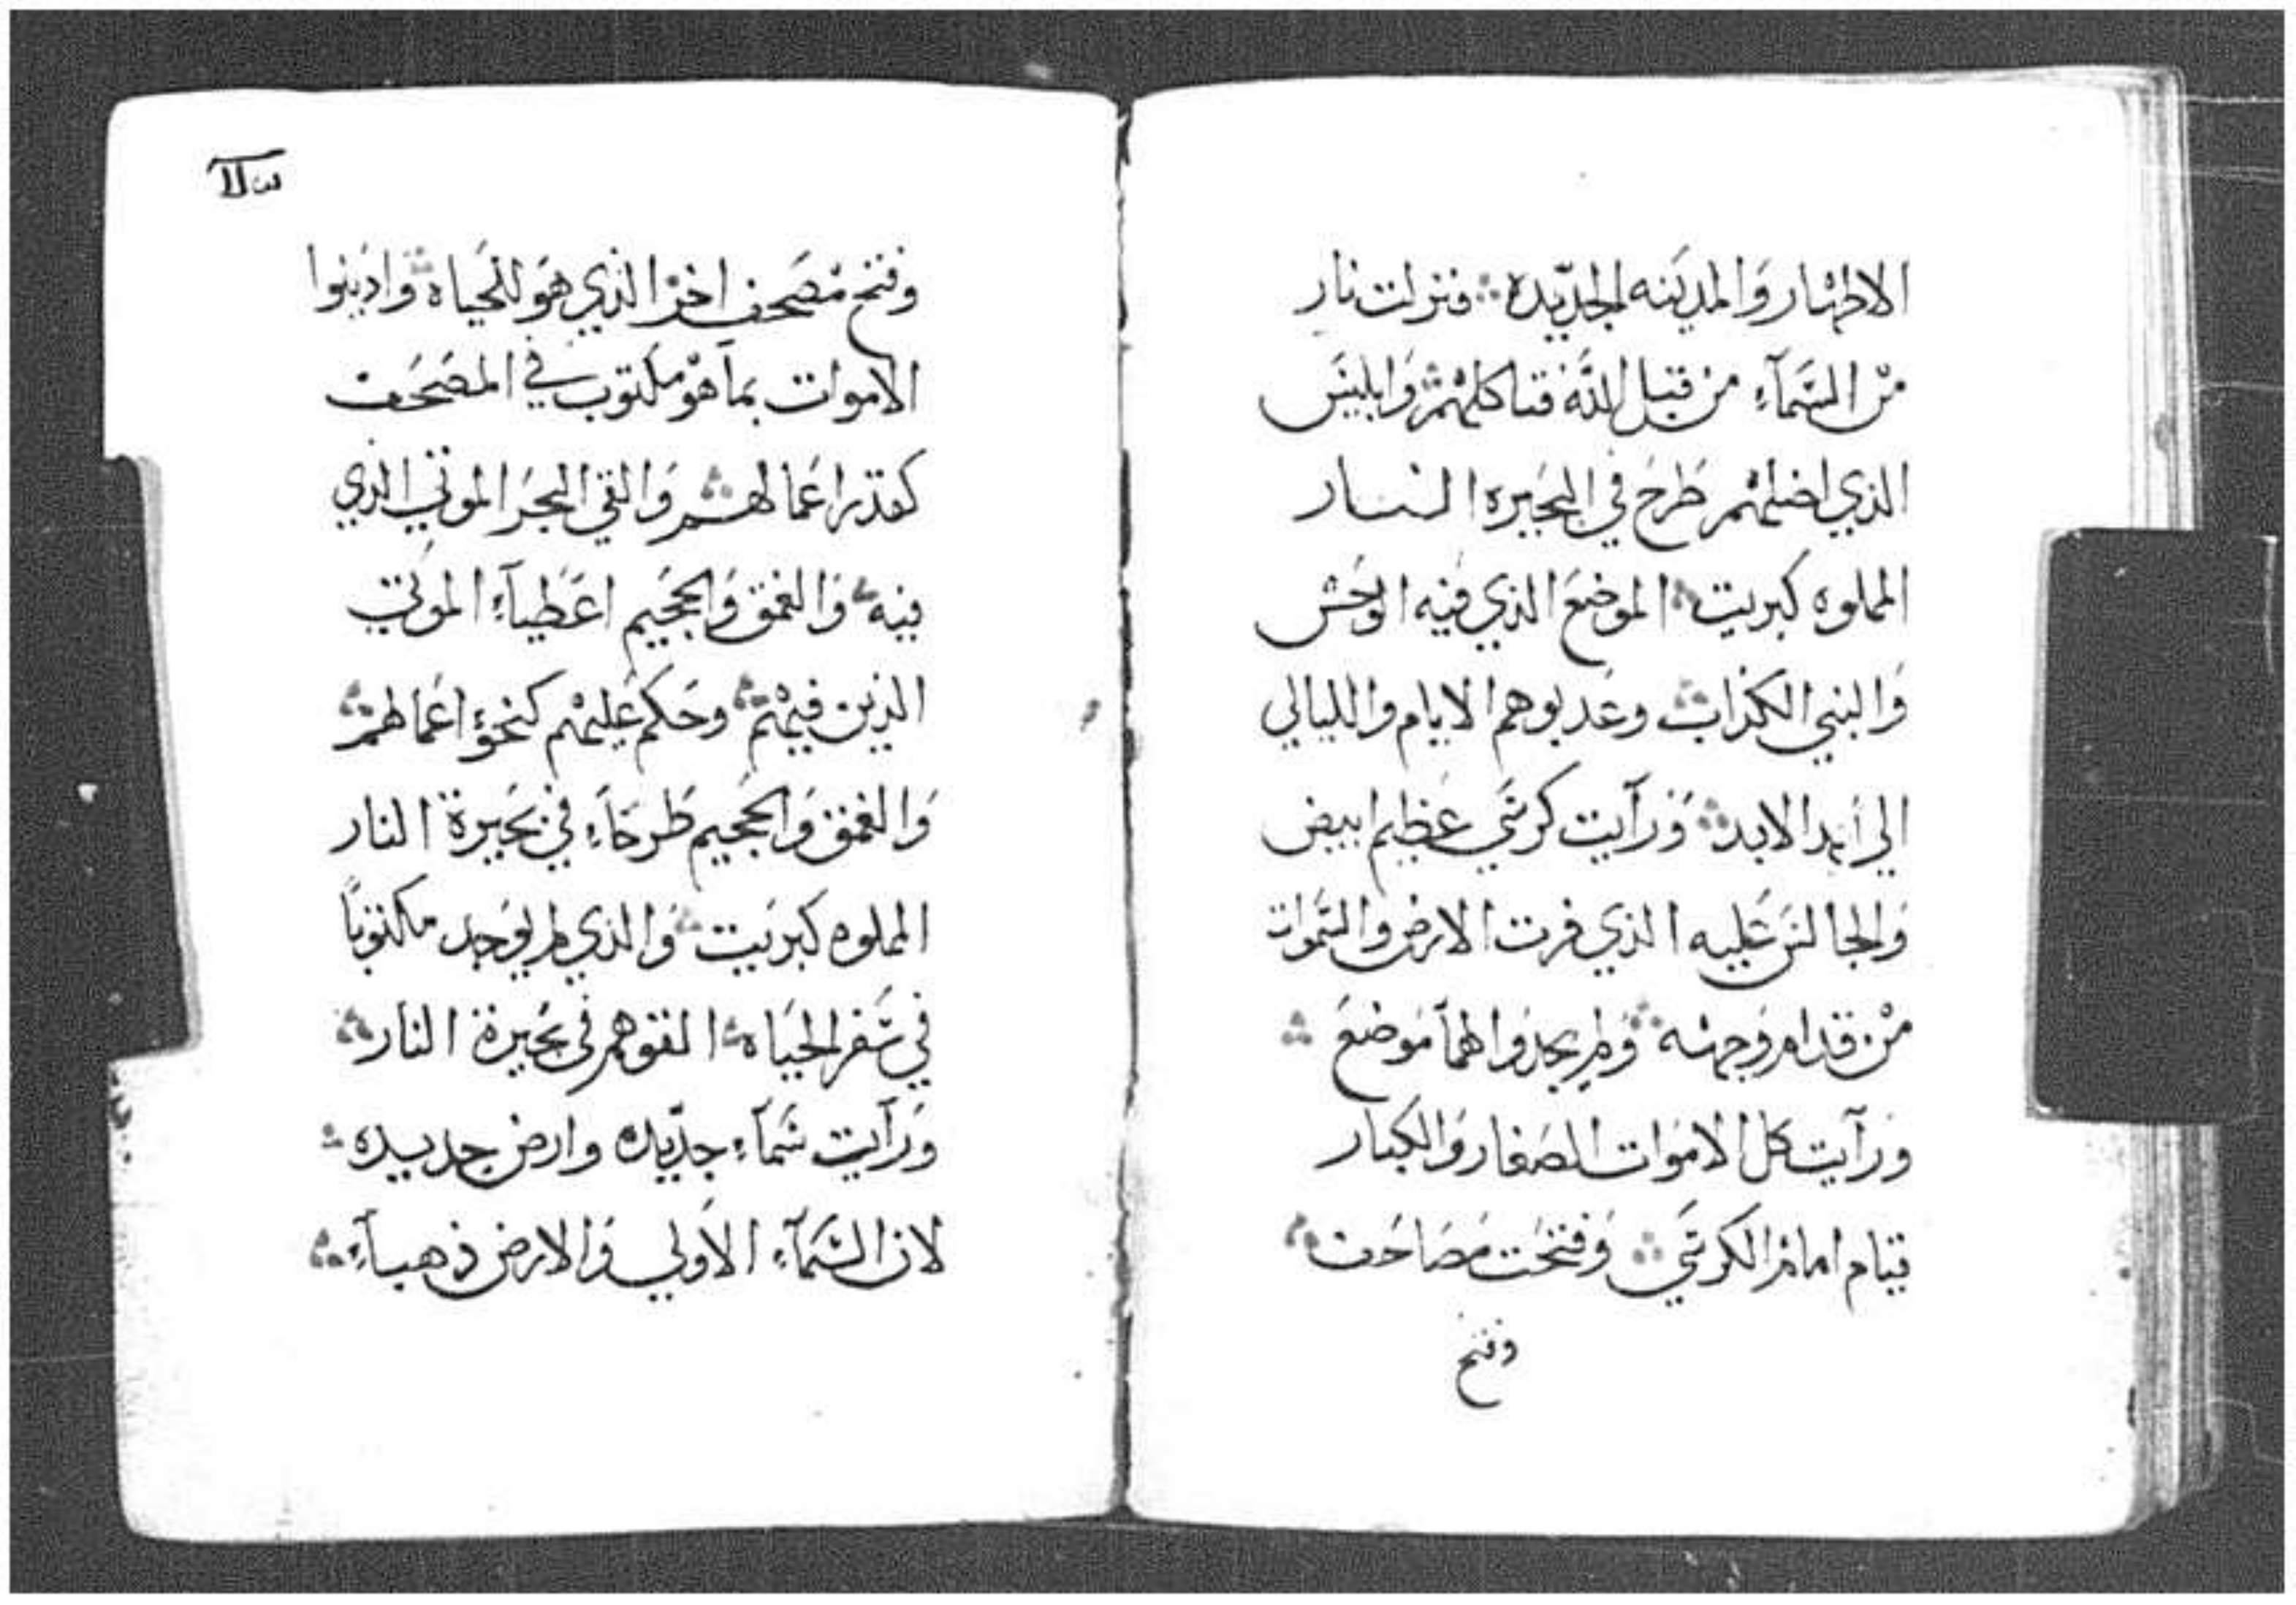 الاطهار والمدينه الجديده ؞ فنزلت نار
من السمآء من قبل الله فتاكلهم ؞ وابليس
الذي اضلهم طرح في البحيره النــار
المملوه كبريت ؞ الموضع الذي فيه الوحش
والنبي الكذاب ؞ وعدبوهم الايام والليالي
الي ابد الابد ؞ ورآيت كرسي عظيم ابيض
والجالس عليه الذي فرت الارض والسموات
من قدام وجهه ؞ ولم يجدوا لهمآ موضع ؞
ورآيت كل الاموات الصغار والكبار
قيام امام الكرسي ؞ وفتحت مصاحف ؞
وفتح
وفتح مصحف اخر الذي هو للحياه ؞ وادينوا
الاموات بمآ هو مكتوب في المصحف
كقدر اعمالهــم ؞ والقي البحر الموتي الذي
فيه ؞ والغمق والجحيم اعطيآء الموتي
الذين فيهم ؞ وحكم عليهم كنحو اعمالهم ؞
والغمق والجحيم طرحآء في بحيرة النار
المملوه كبريت ؞ والذي لم يوجد مكتوبًا
في سفر الحياه ؞ القوهم في بحيرة النار ؞
ورآيت سمآء جديده وارض جديده ؞
لان السمآء الاولي والارض ذهبآء ؞